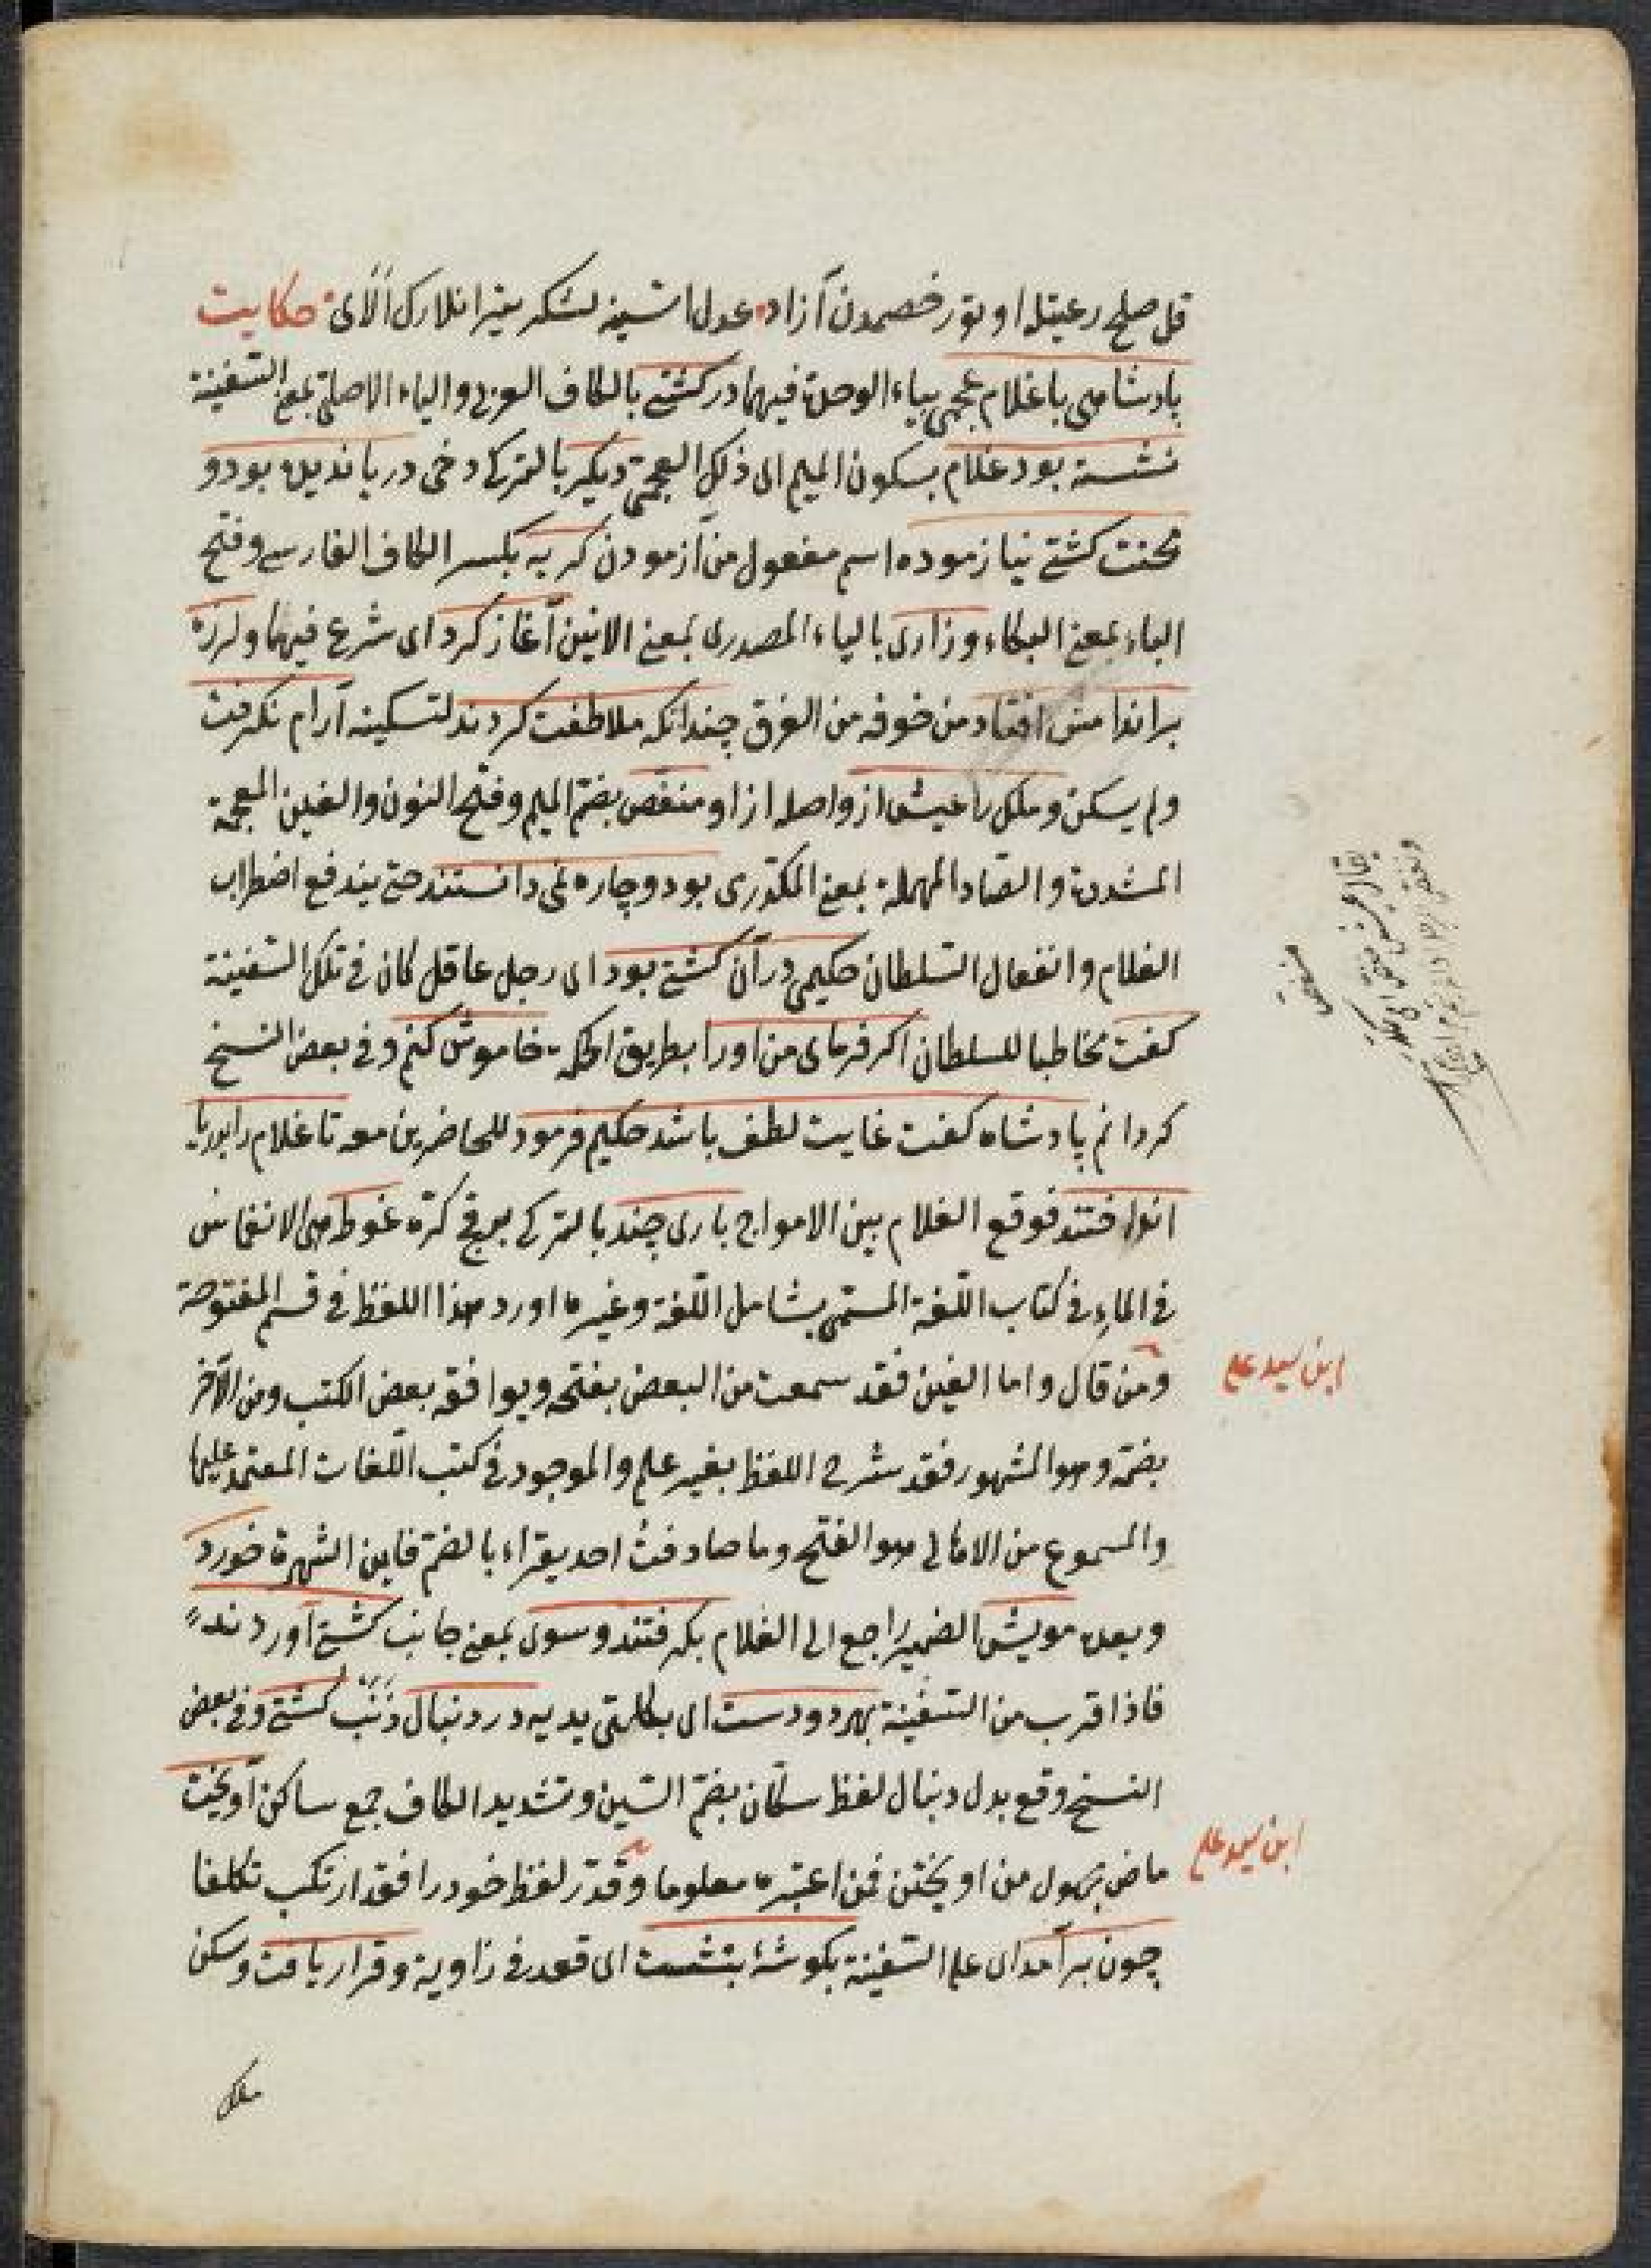 قل صلح رعيتله اوتور خصمدن آزاد عدل اشيينه لشكر ييز انلارك آلاى حكايت
پادشاهى با غلام عجمى بياء الوحدة فيهما در كشتى بالكاف العربى والياء الاصلى بمعنى السفينة
نشسته بود غلام بسكون الميم اى ذلك العجمى ديكر بالتركى دخى دريا نديده بود و
محنت كشتى نيازموده اسم مفعول من آزمودن كريه بكسر الكاف الفارسى وفتح
الياء بمعنى البكاء وزارى بالياء المصدرى بمعنى الانين آغاز كرد اى شرع فيهما ولرزه
براندامش افتاد من خوفه من الغرق چندانكه ملاطفت كردند لتسكينه آرام نكرفت
ولم يسكن وملك را عيش ازو اصله از او منغص بضم الميم وفتح النون والغين المعجمة
المشددة والصاد المهملة بمعنى المكدرى بود وچاره نمى دانستند حتى يندفع اضطراب
الغلام وانفعال السلطان حكيمى در آن كشتى بود اى رجل عاقل كان فى تلك السفينة
كفت مخاطبا للسلطان اكر فرماى من اورا بطريق الحكمة خاموش كنم وفى بعض النسخ
كردانم پادشاه كفت غايت لطف باشد حكيم فرمود للحاضرين معه تا غلام را بدريا
انداختند فوقع الغلام بين الامواج بارى چند بالتركى بر قچ كره غوطه هى الانغماس
فى الماء فى كتاب اللغة المسمى بشامل اللغة وغيره اورد هذا اللفظ فى قسم المفتوحة
ومن قال واما الغين فقد سمعت من البعض بفتحه ويوافقه بعض الكتب ومن الآخر
بضمه وهو المشهور فقد شرح اللفظ بغير علم والموجود فى كتب اللغات المعتمد عليها
والمسموع من الاهالى هو الفتح وما صادفت احد يقراء بالضم فاين الشهرة خورد
وبعده مويش الضمير راجع الى الغلام بكرفتند وسوى بمعنى جانب كشتى آوردند
فاذا قرب من السفينة بهر دو دست اى بكلتى يديه در دنبال ذنب كشتى وفى بعض
النسخ وقع بدل دنبال لفظ سكان بضم السين وتشديد الكاف جمع ساكن آويخت
ماض مجهول من اويختن فمن اعتبره معلوما وقدر لفظ خود را فقد ارتكب تكلفا
چون برآمد اى على السفينة بكوشۀ بنشست اى قعد فى زاوية وقرار يافت وسكن
ملك
منغص
ابن سيد على
ابن سيد على